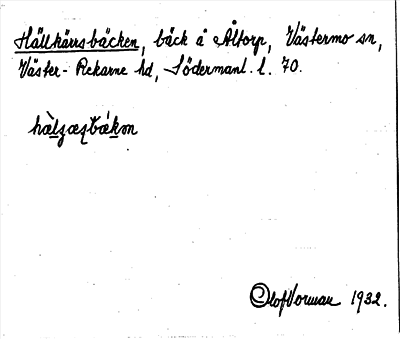 Hällkärrsbäcken, bäck å Åltorp, Västermo sn,
Väster-Rekarne hd, Södermanl. l. 70.
Olof Vorman 1932.